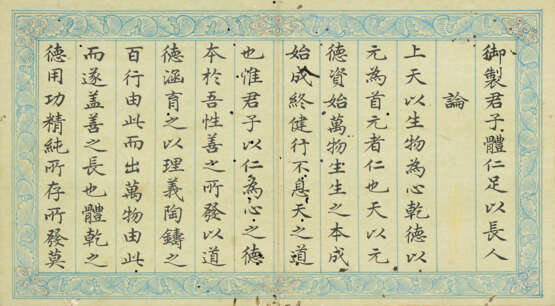 御製君子體仁足以長人
論
上天以生物為心乾德以
元為首元者仁也天以元
德資始萬物生生之本成
始成終健行不息天之道
也惟君子以仁為心之德
本於吾性善之所發以道
德涵育之以理義陶鑄之
百行由此而出萬物由此
而遂盖善之長也體乾之
德用功精純所存所發莫